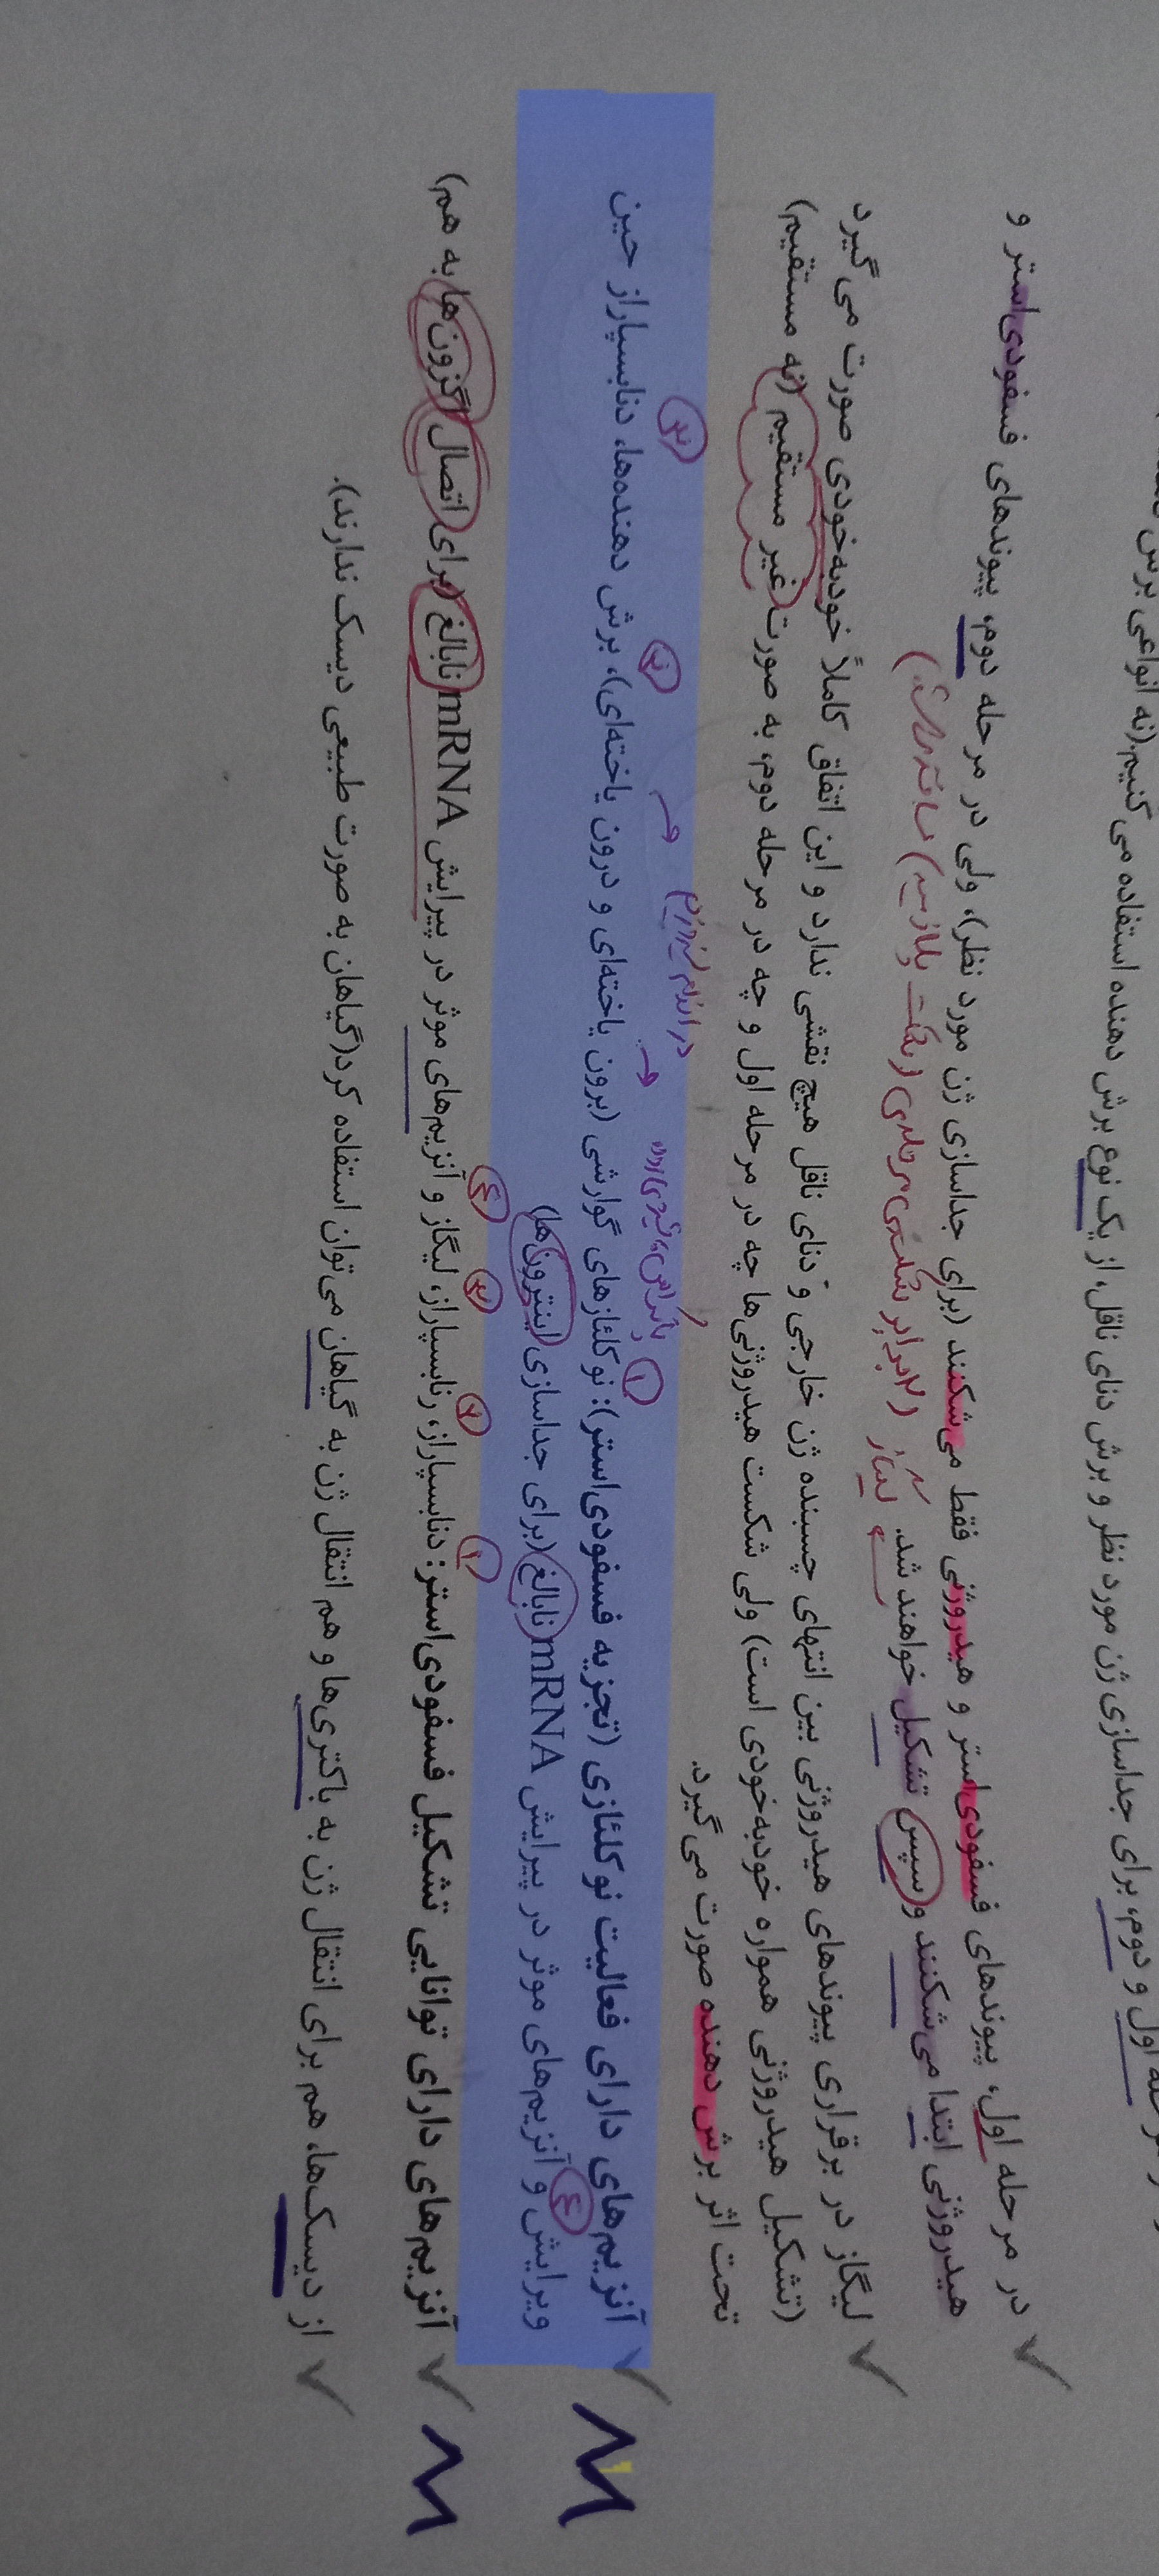 برای جداسازی ژن مورد نظر و برش دنای ناقل، از یک نوع برش دهنده استفاده می‌کنیم.(نه انواعی برش
در مرحله اول، پیوندهای فسفودی‌استر و هیدروژنی فقط می‌شکنند (برای جداسازی ژن مورد نظر)، ولی در مرحله دوم، پیوندهای فسفودی‌استر و
هیدروژنی ابتدا می‌شکنند و سپس تشکیل خواهند شد.
لیگاز در برقراری پیوندهای هیدروژنی بین انتهای چسبنده ژن خارجی و دنای ناقل هیچ نقشی ندارد و این اتفاق کاملاً خودبه‌خودی صورت می‌گیرد
(تشکیل هیدروژنی همواره خودبه‌خودی است) ولی شکست هیدروژنی‌ها چه در مرحله اول و چه در مرحله دوم، به صورت غیر مستقیم (نه مستقیم)
تحت اثر برش دهنده صورت می‌گیرد.
آنزیم‌های دارای فعالیت نوکلئازی (تجزیه فسفودی‌استر): نوکلئازهای گوارشی (برون یاخته‌ای و درون یاخته‌ای)، برش دهنده‌ها، دنابسپاراز حین
ویرایش و آنزیم‌های موثر در پیرایش mRNA نابالغ (برای جداسازی اینترون‌ها)
آنزیم‌های دارای توانایی تشکیل فسفودی‌استر: دنابسپاراز، رنابسپاراز، لیگاز و آنزیم‌های موثر در پیرایش mRNA نابالغ (برای اتصال اگزون‌ها به هم)
از دیسک‌ها، هم برای انتقال ژن به باکتری‌ها و هم انتقال ژن به گیاهان می‌توان استفاده کرد(گیاهان به صورت طبیعی دیسک ندارند).